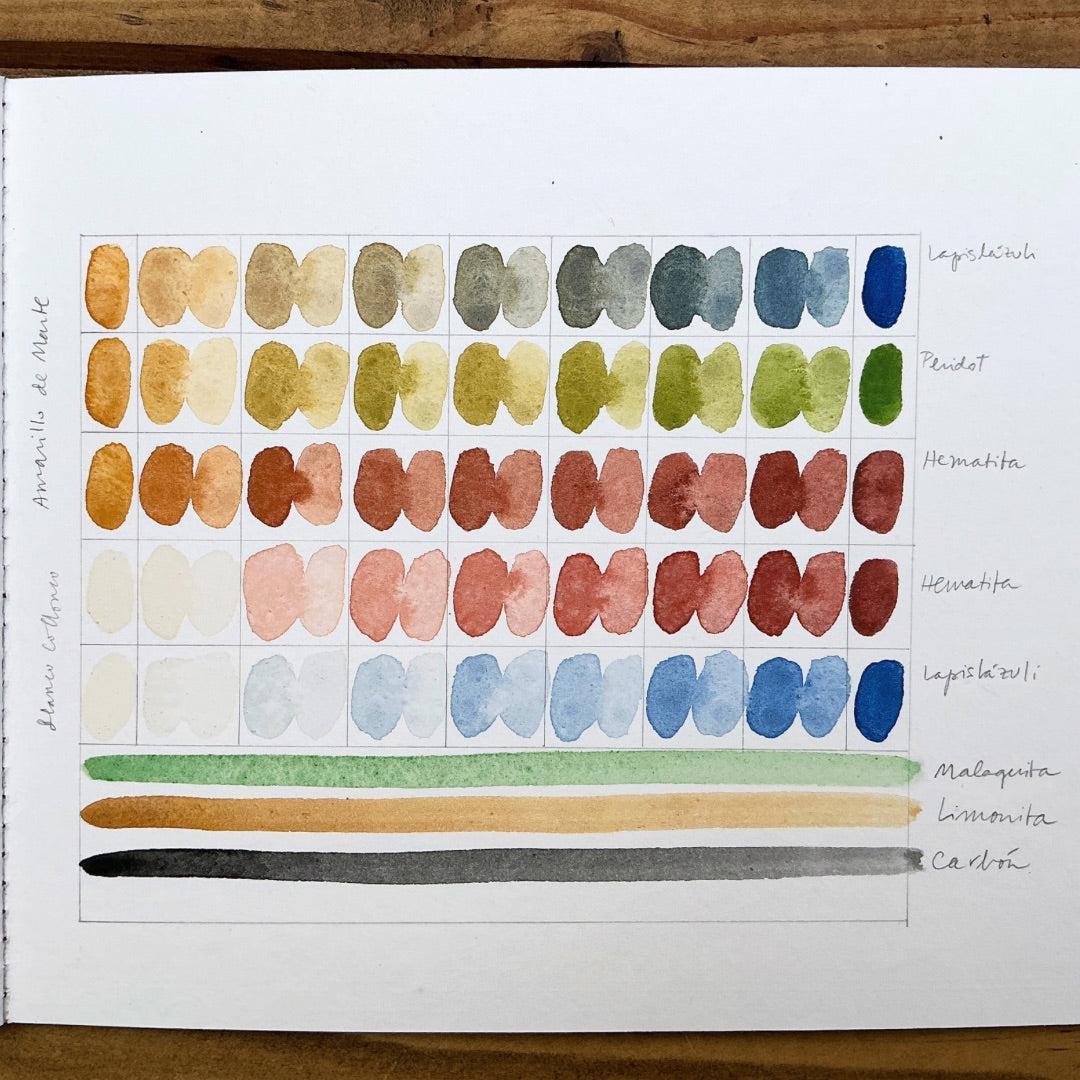 Lapislázuli
Peridot
Hematita
Hematita
Lapislázuli
Malaquita
Limonita
Carbón
Amarillo de Marte
Blanco